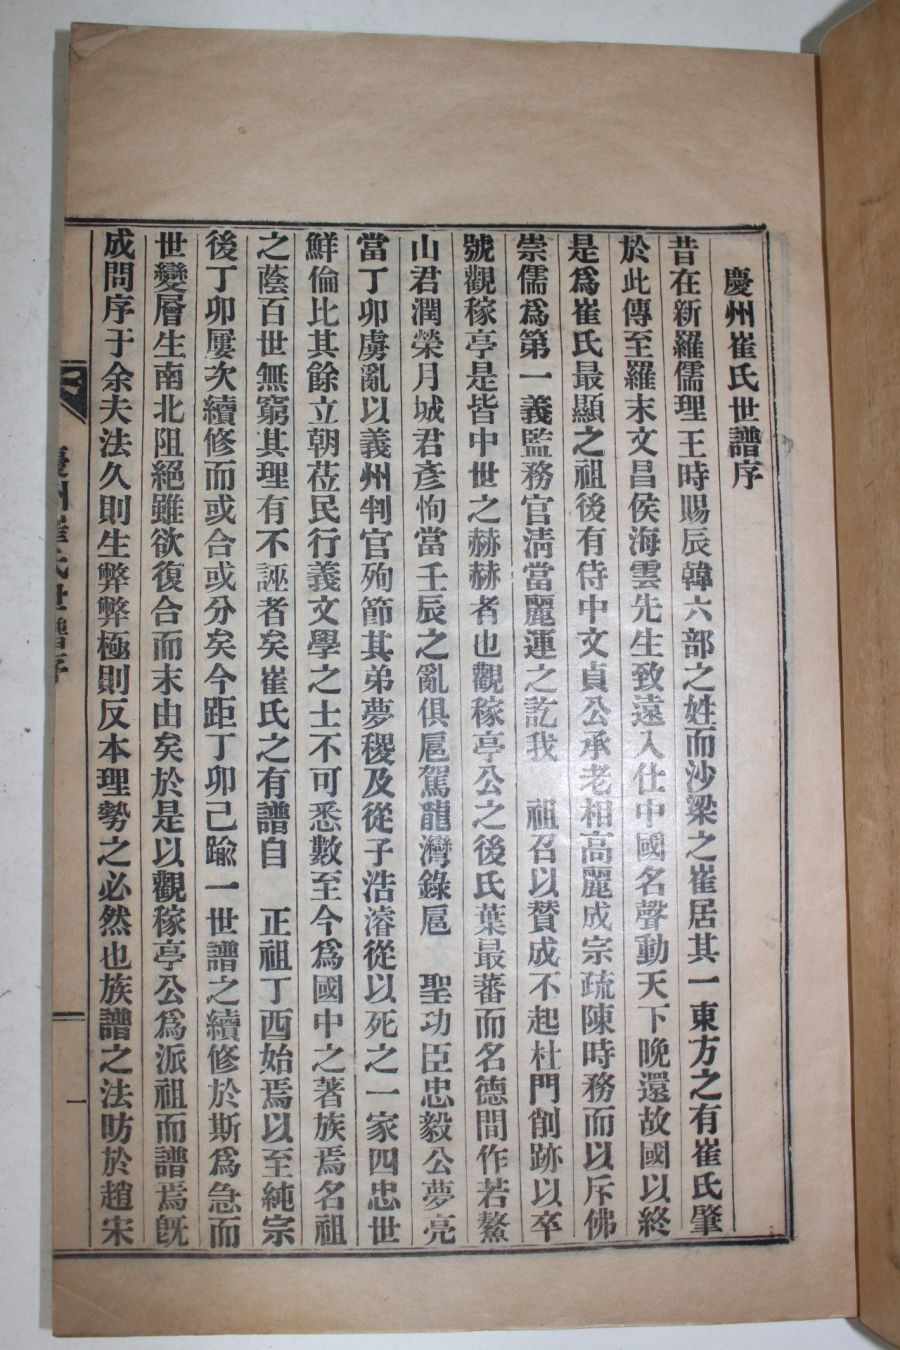 慶州崔氏世譜序
昔在新羅儒理王時賜辰韓六部之姓而沙梁之崔居其一東方之有崔氏肇
於此傳至羅末文昌侯海雲先生致遠入仕中國名聲動天下晚還故國以終
是爲崔氏最顯之祖後有侍中文貞公承老相高麗成宗疏陳時務而以斥佛
崇儒爲第一義監務官淸當麗運之訖我　祖召以賛成不起杜門削跡以卒
號觀稼亭是皆中世之赫赫者也觀稼亭公之後氏葉最蕃而名德間作若鰲
山君潤榮月城君彥恂當壬辰之亂俱扈駕龍灣錄扈　聖功臣忠毅公夢亮
當丁卯虜亂以義州判官殉節其弟夢稷及從子浩濬從以死之一家四忠世
鮮倫比其餘立朝莅民行義文學之士不可悉數至今爲國中之著族焉名祖
之蔭百世無窮其理有不誣者矣崔氏之有譜自　正祖丁酉始焉以至純宗
後丁卯屢次續修而或合或分矣今距丁卯已踰一世譜之續修於斯爲急而
世變層生南北阻絕雖欲復合而末由矣於是以觀稼亭公爲派祖而譜焉旣
成問序于余夫法久則生弊弊極則反本理勢之必然也族譜之法昉於趙宋
慶州崔氏世譜序
一